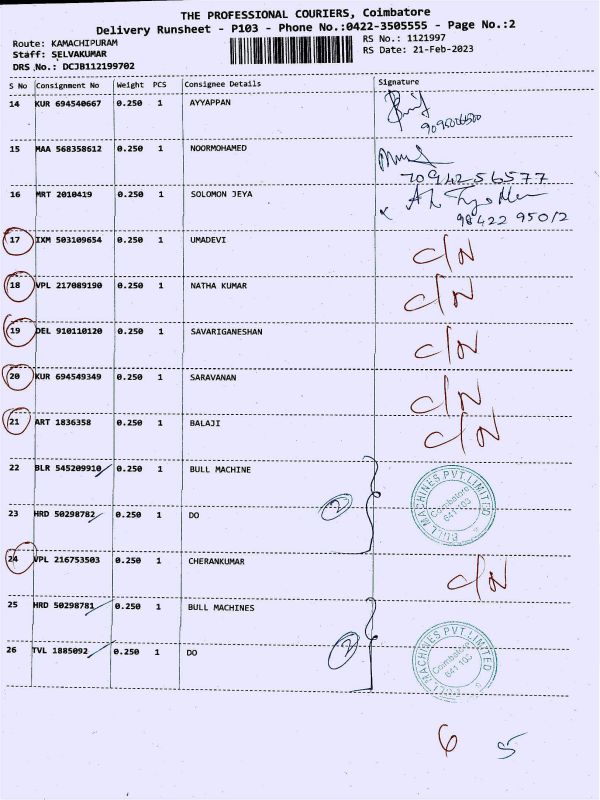 THE PROFESSIONAL COURIERS, Coimbatore
Delivery Runsheet - P103 - Phone No.:0422-3505555 - Page No.:2
Route: KAMACHIPURAM RS No.: 1121997
Staff: SELVAKUMAR RS Date: 21-Feb-2023
DRS No.: DCJB112199702
S No Consignment No Weight PCS Consignee Details Signature
14 KUR 694540667 0.250 1 AYYAPPAN
15 MAA 568358612 0.250 1 NOORMOHAMED
7094256577
16 MRT 2010419 0.250 1 SOLOMON JEYA
98422 95012
17 IXM 503109654 0.250 1 UMADEVI C/N
18 VPL 217089190 0.250 1 NATHA KUMAR C/N
19 DEL 910110120 0.250 1 SAVARIGANESHAN C/N
20 KUR 694549349 0.250 1 SARAVANAN C/N
21 ART 1836358 0.250 1 BALAJI C/N
22 BLR 545209910 0.250 1 BULL MACHINE
2
BULL MACHINES PVT LIMITED
Coimbatore
641 103
23 HRD 50298782 0.250 1 DO
24 VPL 216753503 0.250 1 CHERANKUMAR C/N
25 HRD 50298781 0.250 1 BULL MACHINES
2
BULL MACHINES PVT LIMITED
Coimbatore
641 103
26 TVL 1885092 0.250 1 DO
6 5